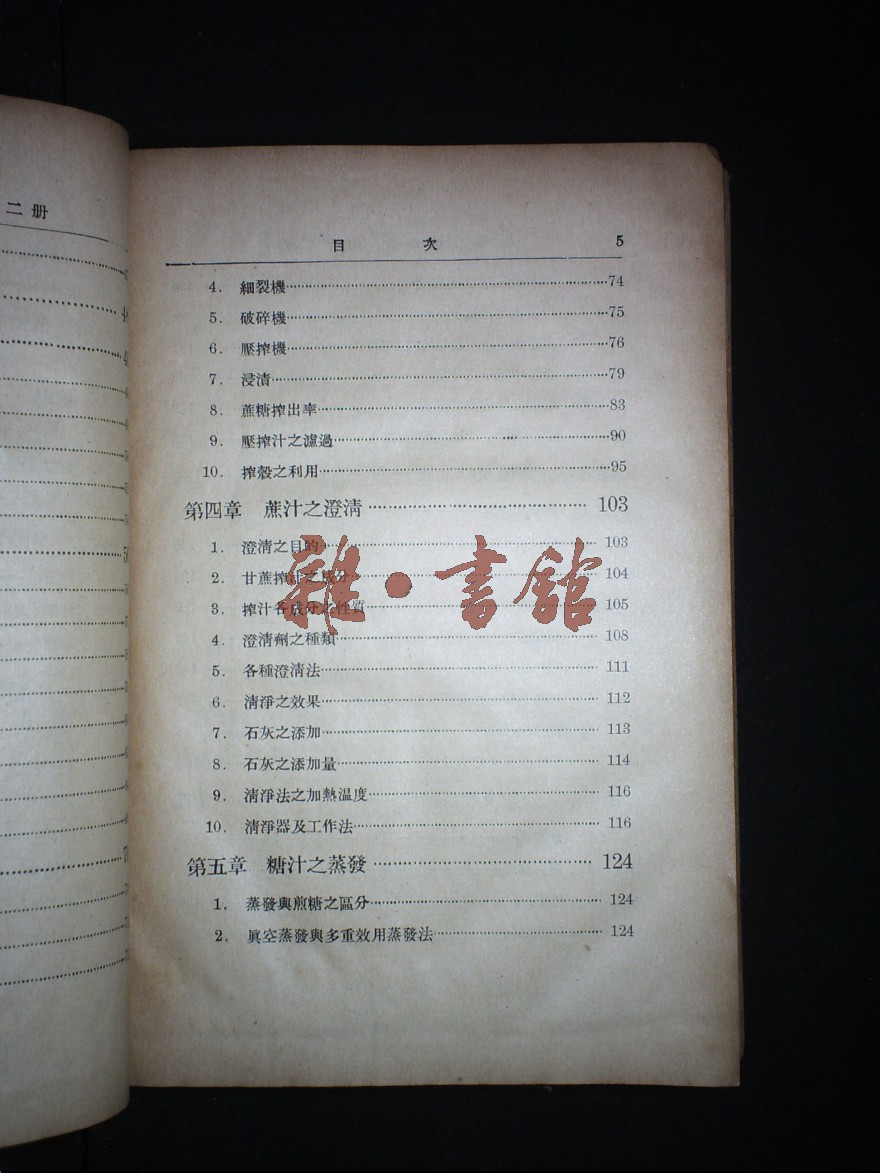 二册
目 次 5
4. 細裂機 74
5. 破碎機 75
6. 壓搾機 76
7. 浸漬 79
8. 蔗糖搾出率 83
9. 壓搾汁之濾過 90
10. 搾殼之利用 95
第四章 蔗汁之澄淸 103
1. 澄淸之目的 103
2. 甘蔗搾汁之成分 104
3. 搾汁各成分之性質 105
雜·書館
4. 澄淸劑之種類 108
5. 各種澄淸法 111
6. 淸淨之效果 112
7. 石灰之添加 113
8. 石灰之添加量 114
9. 淸淨法之加熱温度 116
10. 淸淨器及工作法 116
第五章 糖汁之蒸發 124
1. 蒸發與煎糖之區分 124
2. 眞空蒸發與多重效用蒸發法 124